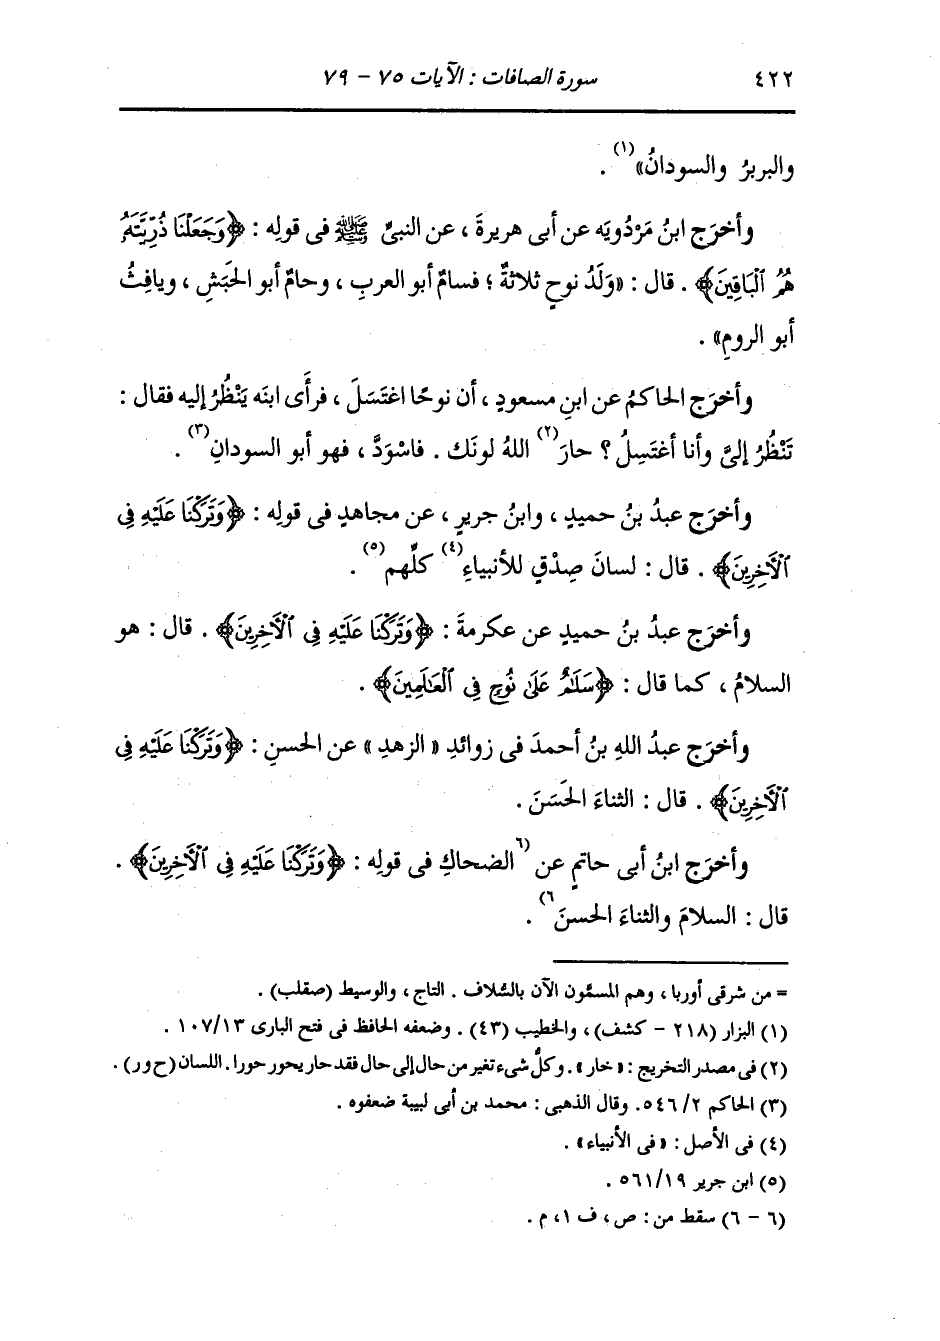 ٤٢٢ سورة الصافات : الآيات ٧٥ - ٧٩
والبربرُ والسودانُ»(١) .
وأخرَج ابنُ مَرْدُويَه عن أبى هريرةَ ، عن النبىِّ ﷺ فى قولِه : ﴿وَجَعَلْنَا ذُرِّيَّتَهُ
هُمُ ٱلْبَاقِينَ﴾ . قال : «وَلَدُ نوحٍ ثلاثةٌ ؛ فسامٌ أبو العربِ ، وحامٌ أبو الحَبَشِ ، ويافِثُ
أبو الرومِ» .
وأخرَج الحاكمُ عن ابنِ مسعودٍ ، أن نوحًا اغتَسَلَ ، فرأَى ابنَه يَنْظُرُ إليه فقال :
تَنْظُرُ إلىَّ وأنا أغتَسِلُ ؟ حارَ(٢) اللهُ لونَك . فاسْوَدَّ ، فهو أبو السودانِ(٣) .
وأخرَج عبدُ بنُ حميدٍ ، وابنُ جريرٍ ، عن مجاهدٍ فى قولِه : ﴿وَتَرَكْنَا عَلَيْهِ فِى
ٱلْأَخِرِينَ﴾ . قال : لسانَ صِدْقٍ للأنبياءِ(٤) كلِّهم(٥) .
وأخرَج عبدُ بنُ حميدٍ عن عكرمةَ : ﴿وَتَرَكْنَا عَلَيْهِ فِى ٱلْأَخِرِينَ﴾ . قال : هو
السلامُ ، كما قال : ﴿سَلَٰمٌ عَلَىٰ نُوحٍ فِى ٱلْعَٰلَمِينَ﴾ .
وأخرَج عبدُ اللهِ بنُ أحمدَ فى زوائدِ « الزهدِ » عن الحسنِ : ﴿وَتَرَكْنَا عَلَيْهِ فِى
ٱلْأَخِرِينَ﴾ . قال : الثناءَ الحَسَنَ .
وأخرَج ابنُ أبى حاتمٍ عن (٦الضحاكِ فى قولِه : ﴿وَتَرَكْنَا عَلَيْهِ فِى ٱلْأَخِرِينَ﴾ .
قال : السلامَ والثناءَ الحسنَ٦) .
= من شرقى أوربا ، وهم المسمَّون الآن بالسُّلاف . التاج ، والوسيط (صقلب) .
(١) البزار (٢١٨ - كشف) ، والخطيب (٤٣) . وضعفه الحافظ فى فتح البارى ١٠٧/١٣ .
(٢) فى مصدر التخريج : «خار» . وكلُّ شىء تغير من حال إلى حال فقد حار يحور حورا . اللسان (ح ور) .
(٣) الحاكم ٥٤٦/٢ . وقال الذهبى : محمد بن أبى لبيبة ضعفوه .
(٤) فى الأصل : «فى الأنبياء» .
(٥) ابن جرير ٥٦١/١٩ .
(٦ - ٦) سقط من : ص ، ف ١ ، م .